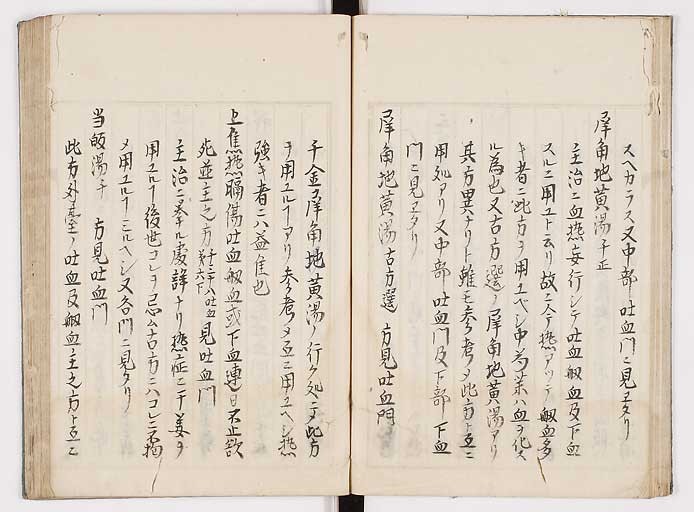 スヘカラス又中部吐血門ニ見ヱタリ
犀角地黄湯 千正
主治ニ血熱妄行シテ吐血衂血及下血
スルニ用ユト云リ故ニ今熱アツテ衂血多
キ者ニ此方ヲ用ユヘシ中芍薬ハ血ヲ化ス
ル為也又古方選ノ犀角地黄湯アリ
其方異ナリト雖モ参考〆此方ト互ニ
用処アリ又中部吐血門及下部下血
門ニ見ヱタリ
犀角地黄湯 古方選 方見吐血門
千金ノ犀角地黄湯ノ行ク処ニテ此方
ヲ用ユルヿアリ参考〆互ニ用ユヘシ熱
強キ者ニハ益佳也
上焦熱膈傷吐血衂血或下血連日不止欲
死並主之方 千十二十八吐血六下 見吐血門
主治ニ挙ル處詳ナリ熱症ニ干姜ヲ
用ユルヿ後世コレヲ忌ム古方ニハコレニ不拘
〆用ユルヿミルヘシ又各門ニ見タリ
当皈湯 千 方見吐血門
此方外臺ノ吐血及衂血主之方ト互ニ